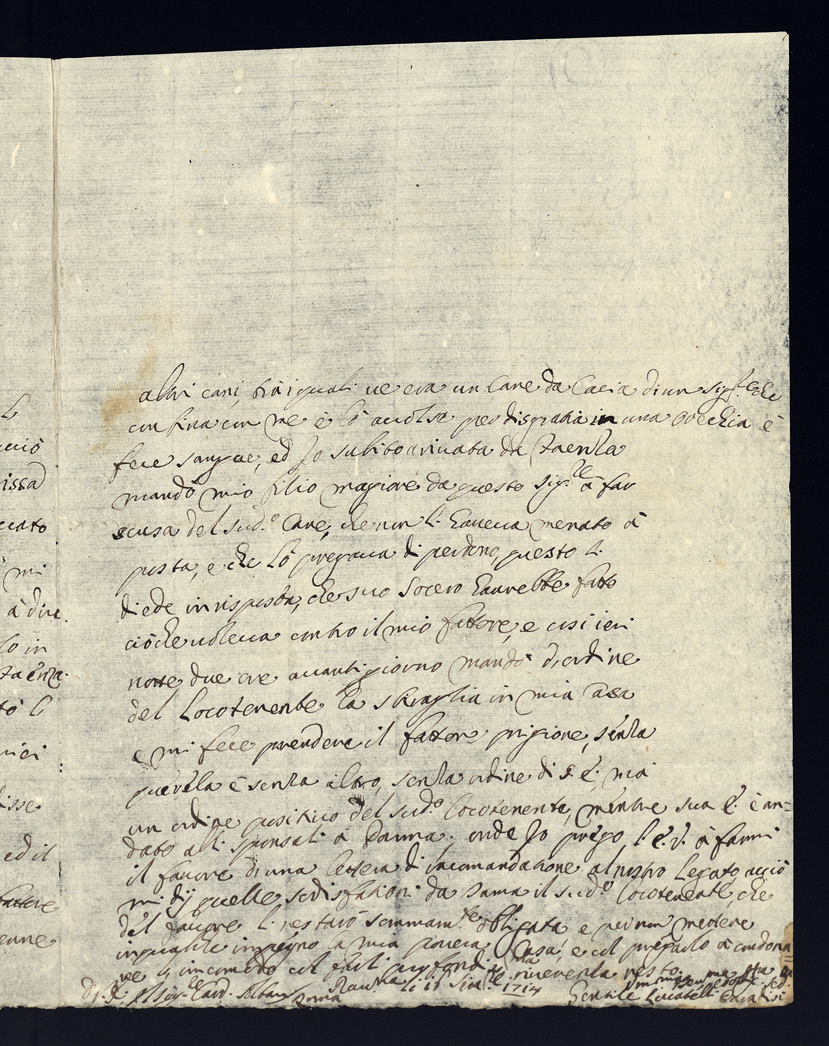 L
altri cani, frà i quali ve era un Cane da Cacia di un Sig.re che
confina con me è lò accolse per disgratia in una orechia è
fece sangue, ed Io subito arivata da Faenza
mandò mio filio magiore da questo Sig.re à far
scusa del sud.o Cane, che non l'haveva menato à
posta, e che lò pregava di perdono, questo li
diede in risposta, che suo Socero haurebbe fatto
ciò che voleva contro il mio fattore, e così ieri
notte due ore avanti giorno mandò d'ordine
del Locotenente la sbiraglia in mia Casa
e mi fece prendere il fattore prigione, senza
querela è senza altro, senza ordine di S. E. mà
un ordine positivo del sud.o Locotenente, mentre sua E. è an=
dato alli sponsali à Parma. onde Io prego l'E. V. à farmi
il favore di una letera di racomandatione al nostro Legato acciò
mi dij quelle sodisfationi da Dama il sud.o Locotenente che
del favore li restarò sommam.te obligata e per non metere
in qualche impegno la mia povera Casa, e col pregarlo à condona=
re l'incomodo col farli profond.ma riverenza resto
Ravenna li 1714
Sig.re Card. Albani Roma
Gentile Lovatelli
ucciò
rissa
ccato
mi
à dire
lo in
Faenza.
tò li
disse
ed il
fattore